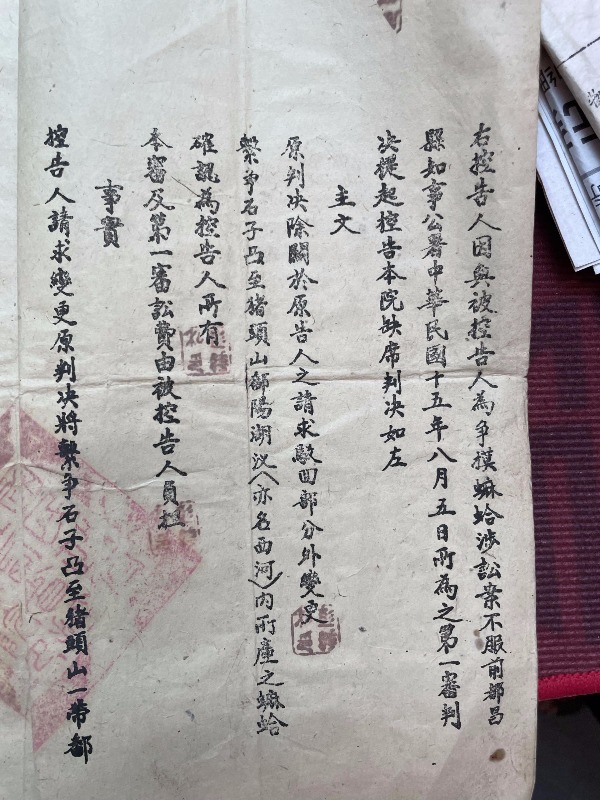 右控告人因與被控告人為爭摸蝻蛤涉訟案不服前都昌
縣知事公署中華民國十五年八月五日所為之第一審判
決提起控告本院缺席判决如左
主文
原判决除關於原告人之請求駁回部分外變更
繫爭石子凸至猪頭山鄱陽湖汊（亦名西河）內所產之蝻蛤
確認為控告人所有
本審及第一審訟費由被控告人負担
事實
控告人請求變更原判决將繫爭石子凸至猪頭山一帶鄱